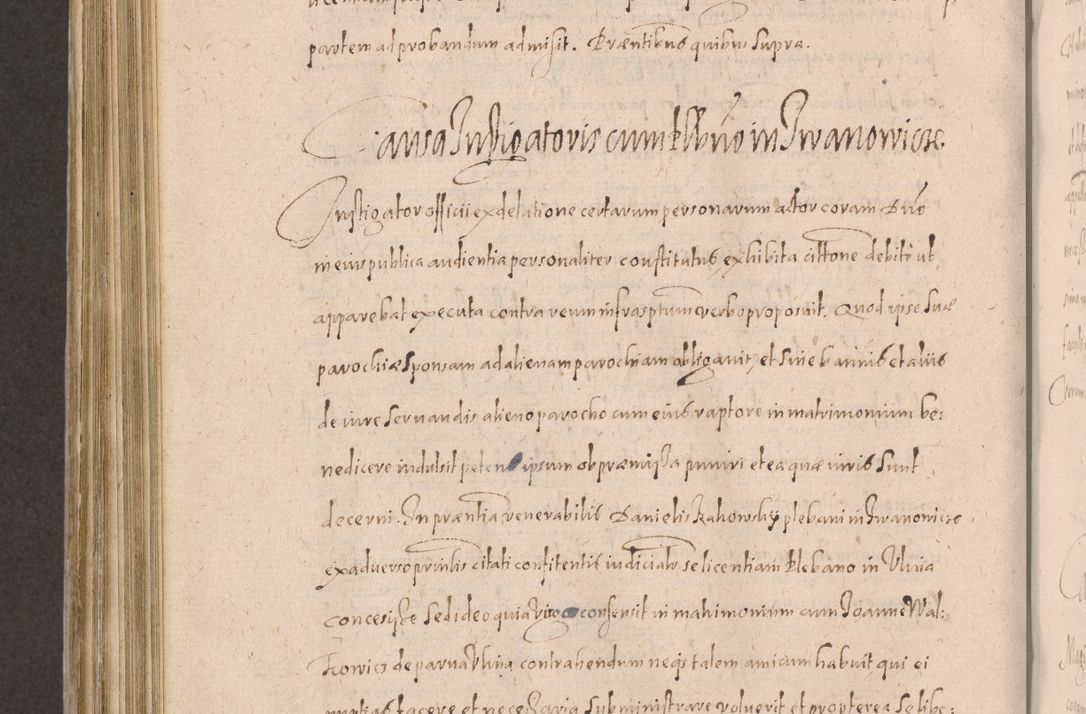 partem ad probandum admisit. Præntibus quibus supra.
Causa Instigatoris cum Plbno in Iwanowicze.
Instigator officii ex delatione certarum personarum actor coram Dno
in eius publica audientia personaliter constitutus exhibita cittone debite ut
apparebat executa contra reum infrasptum verbo proposuit. Quod ipse suæ
parochiæ sponsam ad alienam parochiam obligavit, et sine bannis et aliis
de iure servandis alieno parocho cum eius raptore in matrimonium be:
nedicere indulsit petens ipsum ob præmissa puniri et ea quæ iuris sunt
decerni. In præntia venerabilis Danielis Rakowsky plebani in Iwanowicze
ex adverso prinlis citati confitentis iudicialr se licentiam Plebano in Ulina
concessisse sed ideo quia virgo consensit in matrimonium cum Joanne Wal:
kowicz de parva Vlina contrahendum neqз talem amicum habuit qui ei
nuptias facere et necessaria subministrare voluerit et propterea se libe: